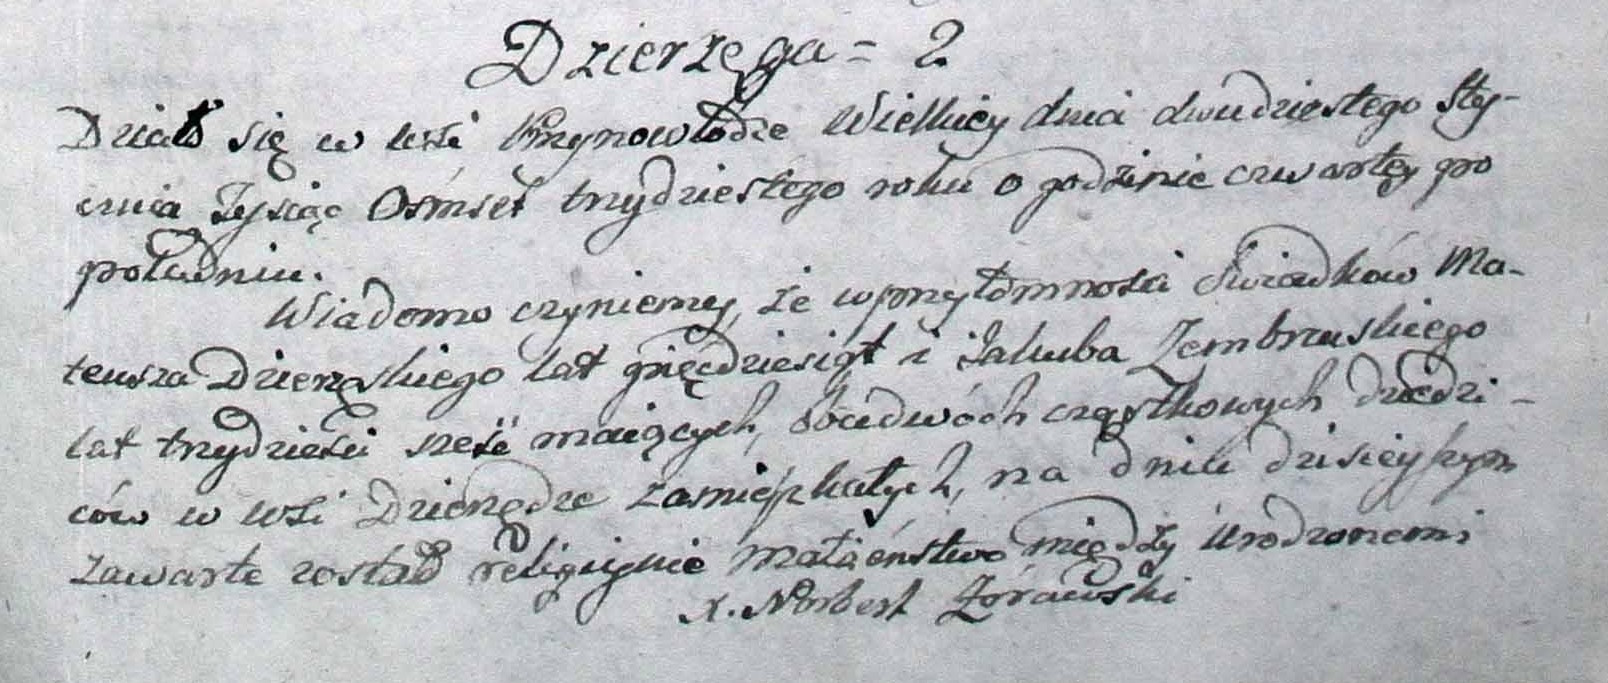 Dzierzęga = 2
Działo się w wsi Krzynowłodze Wielkiey dnia dwudziestego Sty-
cznia Tysiąc Osmset trzydziestego roku o godzinie czwartey po
południu.
Wiadomo czyniemy, że w przytomności Swiadków Ma-
teusza Dzierzęskiego lat pięcdziesiąt i Jakuba Zembrzuskiego
lat trzydzieści sześć maiących, obudwóch cząstkowych dziedzi-
ców w wsi Dzierzędze zamieszkałych, na dniu dzisieyszym
zawarte zostało religijnie Małżeństwo między Urodzonemi
X. Norbert Żórawski